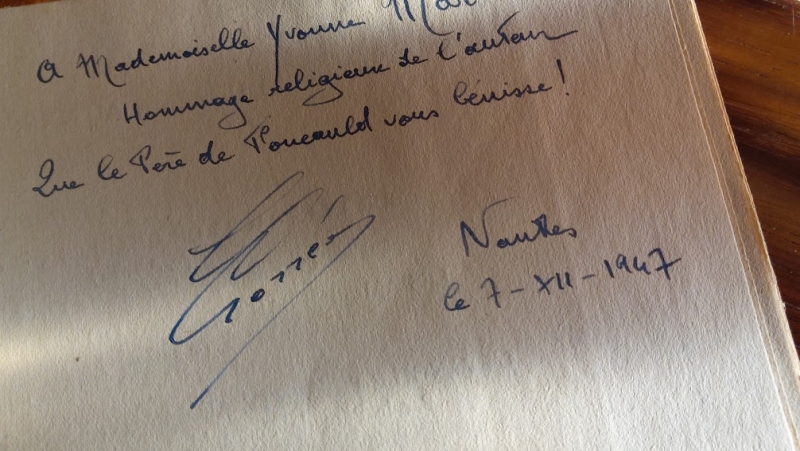 A Mademoiselle Yvonne
Hommage religieux de l'auteur
Que le Père de Foucauld vous bénisse !
Gorrée
Nantes
le 7-XII-1947